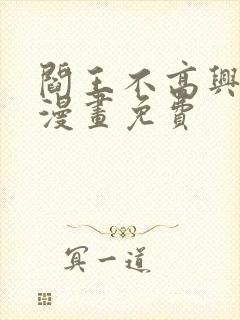 閻王不高興
漫畫免費
冥一道